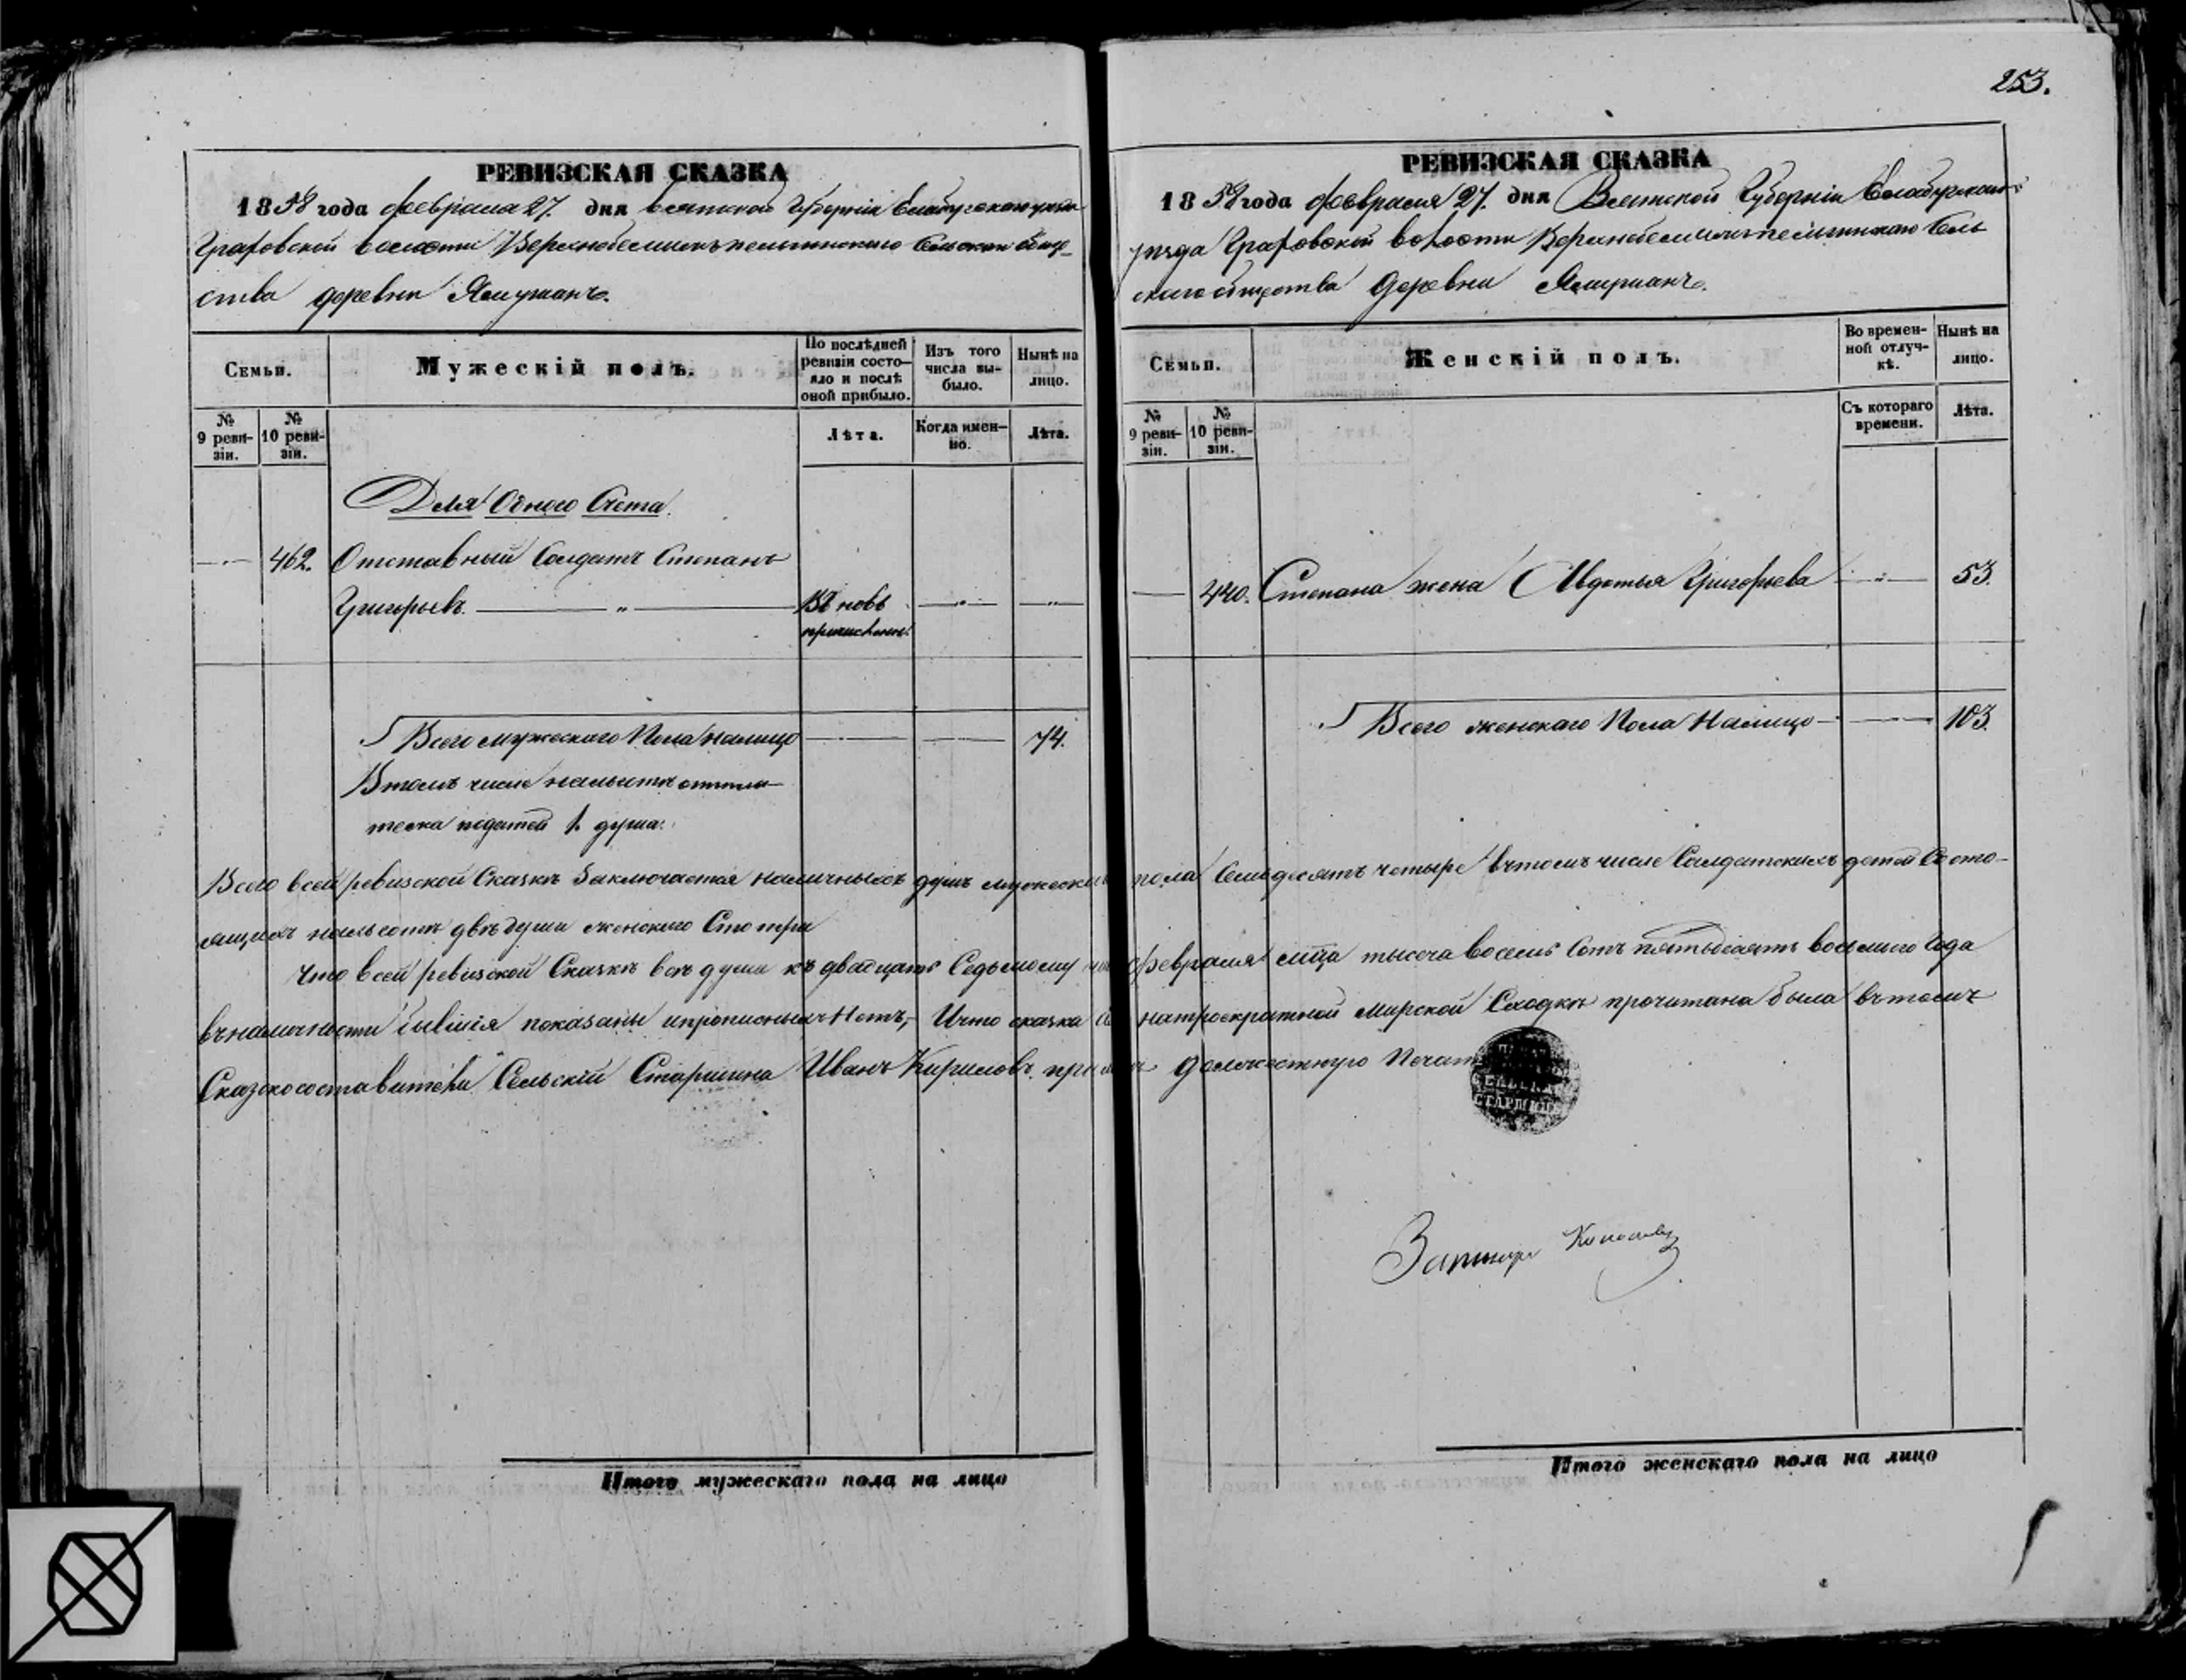 253.
РЕВИЗСКАЯ СКАЗКА
1858 года февраля 27. дня Вятской Губерніи Елабугскаго уезда
Граховской волости Сельскаго обще-
ства деревни
Семьи.
Мужескій полъ.
По послѣдней ревизіи состо-
яло и послѣ оной прибыло.
Изъ того числа вы-
было.
Нынѣ на лицо.
№ 9 реви-
зіи.
№ 10 реви-
зіи.
Лѣта.
Когда имен-
но.
Лѣта.
Для Одного Счета.
462. Отставный Солдатъ Степанъ
Григорьевъ. — „ — Вновь
причислен.
Всего мужескаго Пола налицо 74.
Втомъ числе нальготе отпла-
тежа податей 1. душа.
РЕВИЗСКАЯ СКАЗКА
1858 года февраля 27. дня Вятской Губерніи Елабугскаго
уезда Граховской волости Сель
скаго общества Деревни
Семьи.
Женскій полъ.
Во времен-
ной отлуч-
кѣ.
Нынѣ на лицо.
№ 9 реви-
зіи.
№ 10 реви-
зіи.
Съ котораго времени.
Лѣта.
440. Степана жена Авдотья Григорьева 53.
Всего женскаго Пола Налицо 103.
Всего всей ревизской Сказке Заключается наличныхъ душъ мужеска пола Семьдесятъ четыре втомъ числе Салдатскихъ детей Состо-
ящихъ нальготе две души женскаго Сто три
Что всей ревизской Сказке все души къ двадцать Седьмому февраля мца тысяча восемь Сотъ пятьдесятъ восьмаго Года
вналичности бывшія показаны ипрописныхъ Нетъ, Ичто сказка натроекратной мирской Сходке прочитана была втомъ
Сказкосоставитель Сельскій Старшина Иванъ Кириловъ должностную Печать
СЕЛЬСКАГО
СТАРШИНЫ
Итого мужескаго пола на лицо
Итого женскаго пола на лицо